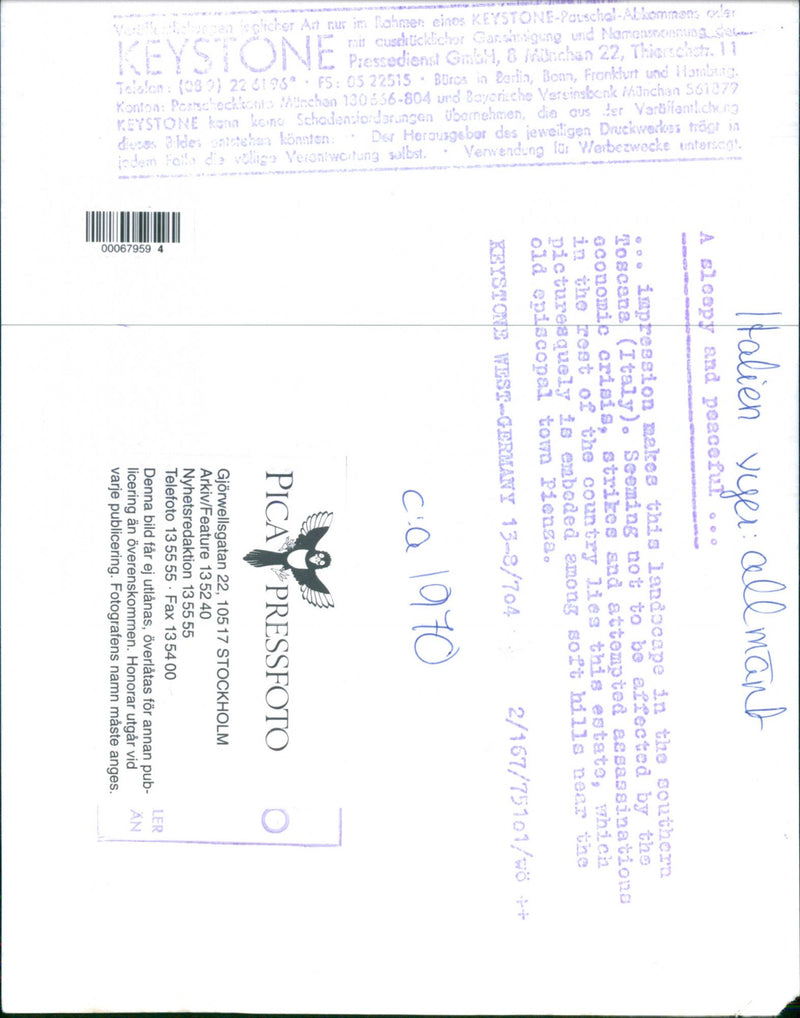 Veröffentlichungen jeglicher Art nur im Rahmen eines KEYSTONE-Pauschal-Abkommens oder
KEYSTONE
mit ausdrücklicher Genehmigung und Namensnennung der
Pressedienst GmbH, 8 München 22, Thierschstr. 11
Telefon: (089) 22 61 96* · FS: 05 22515 · Büros in Berlin, Bonn, Frankfurt und Hamburg.
Konten: Postscheckkonto München 130656-804 und Bayerische Vereinsbank München 561279
KEYSTONE kann keine Schadensforderungen übernehmen, die aus der Veröffentlichung
dieses Bildes entstehen könnten. · Der Herausgeber des jeweiligen Druckwerkes trägt in
jedem Falle die völlige Verantwortung selbst. · Verwendung für Werbezwecke untersagt.
00067959 4
Italien vyer: allmänt
A sleepy and peaceful ...
... impression makes this landscape in the southern
Toscana (Italy). Seeming not to be affected by the
economic crisis, strikes and attempted assassinations
in the rest of the country lies this estate, which
picturesquely is embeded among soft hills near the
old episcopal town Pienza.
KEYSTONE WEST-GERMANY 13-8/704 2/167/75101/wö ++
c:a 1970
PICA PRESSFOTO
Gjörwellsgatan 22, 105 17 STOCKHOLM
Arkiv/Feature 13 52 40
Nyhetsredaktion 13 55 55
Telefoto 13 55 55 · Fax 13 54 00
Denna bild får ej utlånas, överlåtas för annan pub-
licering än överenskommen. Honorar utgår vid
varje publicering. Fotografens namn måste anges.
LER
ÄN